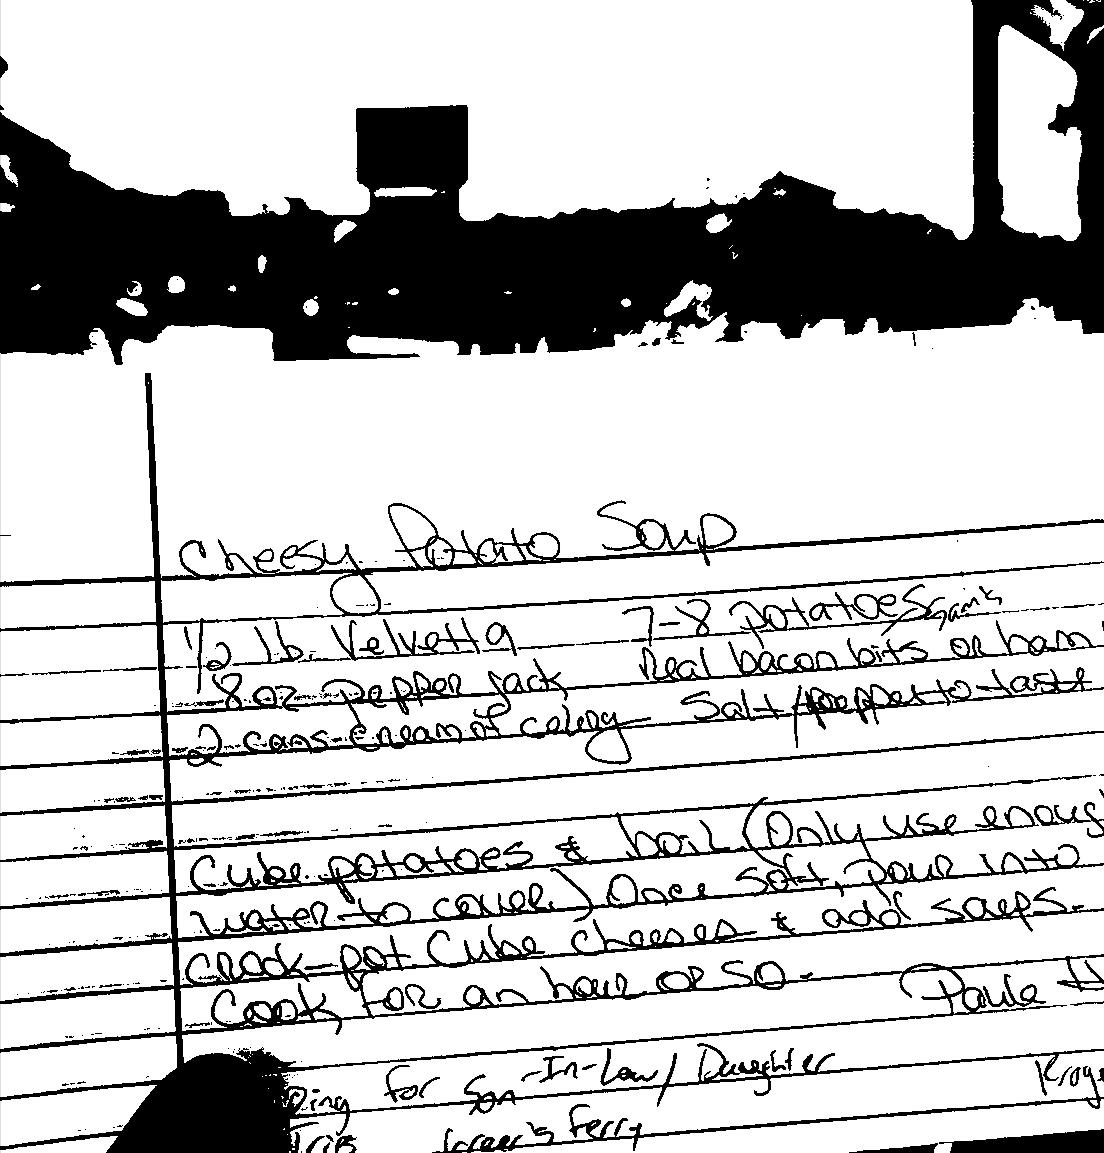 Cheesy Potato Soup
1/2 lb. Velvetta 7-8 potatoes
8 oz pepper jack Real bacon bits or ham
2 cans cream of celery Salt/pepper to taste
Cube potatoes & boil (Only use enoug
water to cover.) Once soft, pour into
crock-pot Cube cheeses & add soups.
Cook for an hour or so.
Paula H
for Son-In-Law/Daughter
Ferry